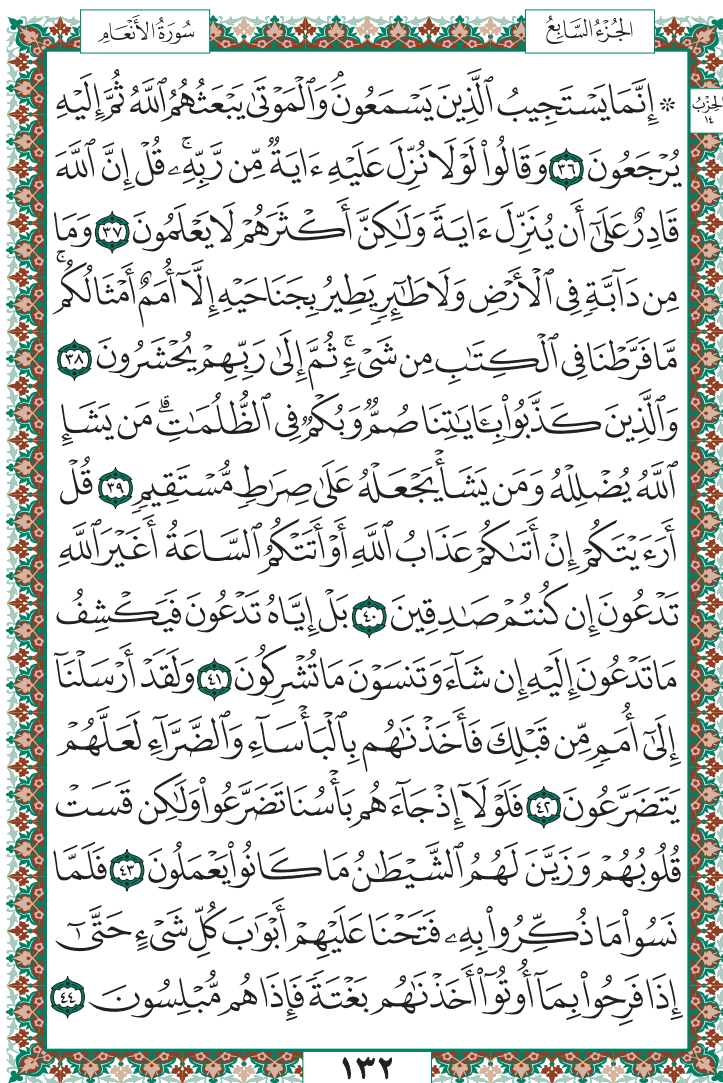 سُورَةُ الأَنْعَامِ
الجُزْءُ السَّابِعُ
الحِزْبُ
١٤
۞ إِنَّمَا يَسْتَجِيبُ ٱلَّذِينَ يَسْمَعُونَۘ وَٱلْمَوْتَىٰ يَبْعَثُهُمُ ٱللَّهُ ثُمَّ إِلَيْهِ
يُرْجَعُونَ ٣٦ وَقَالُوا۟ لَوْلَا نُزِّلَ عَلَيْهِ ءَايَةٌ مِّن رَّبِّهِۦۚ قُلْ إِنَّ ٱللَّهَ
قَادِرٌ عَلَىٰٓ أَن يُنَزِّلَ ءَايَةً وَلَٰكِنَّ أَكْثَرَهُمْ لَا يَعْلَمُونَ ٣٧ وَمَا
مِن دَآبَّةٍ فِى ٱلْأَرْضِ وَلَا طَٰٓئِرٍ يَطِيرُ بِجَنَاحَيْهِ إِلَّآ أُمَمٌ أَمْثَالُكُمۚ
مَّا فَرَّطْنَا فِى ٱلْكِتَٰبِ مِن شَىْءٍۚ ثُمَّ إِلَىٰ رَبِّهِمْ يُحْشَرُونَ ٣٨
وَٱلَّذِينَ كَذَّبُوا۟ بِـَٔايَٰتِنَا صُمٌّ وَبُكْمٌ فِى ٱلظُّلُمَٰتِۗ مَن يَشَإِ
ٱللَّهُ يُضْلِلْهُ وَمَن يَشَأْ يَجْعَلْهُ عَلَىٰ صِرَٰطٍ مُّسْتَقِيمٍ ٣٩ قُلْ
أَرَءَيْتَكُمْ إِنْ أَتَىٰكُمْ عَذَابُ ٱللَّهِ أَوْ أَتَتْكُمُ ٱلسَّاعَةُ أَغَيْرَ ٱللَّهِ
تَدْعُونَ إِن كُنتُمْ صَٰدِقِينَ ٤٠ بَلْ إِيَّاهُ تَدْعُونَ فَيَكْشِفُ
مَا تَدْعُونَ إِلَيْهِ إِن شَآءَ وَتَنسَوْنَ مَا تُشْرِكُونَ ٤١ وَلَقَدْ أَرْسَلْنَآ
إِلَىٰٓ أُمَمٍ مِّن قَبْلِكَ فَأَخَذْنَٰهُم بِٱلْبَأْسَآءِ وَٱلضَّرَّآءِ لَعَلَّهُمْ
يَتَضَرَّعُونَ ٤٢ فَلَوْلَآ إِذْ جَآءَهُم بَأْسُنَا تَضَرَّعُوا۟ وَلَٰكِن قَسَتْ
قُلُوبُهُمْ وَزَيَّنَ لَهُمُ ٱلشَّيْطَٰنُ مَا كَانُوا۟ يَعْمَلُونَ ٤٣ فَلَمَّا
نَسُوا۟ مَا ذُكِّرُوا۟ بِهِۦ فَتَحْنَا عَلَيْهِمْ أَبْوَٰبَ كُلِّ شَىْءٍ حَتَّىٰٓ
إِذَا فَرِحُوا۟ بِمَآ أُوتُوٓا۟ أَخَذْنَٰهُم بَغْتَةً فَإِذَا هُم مُّبْلِسُونَ ٤٤
١٣٢